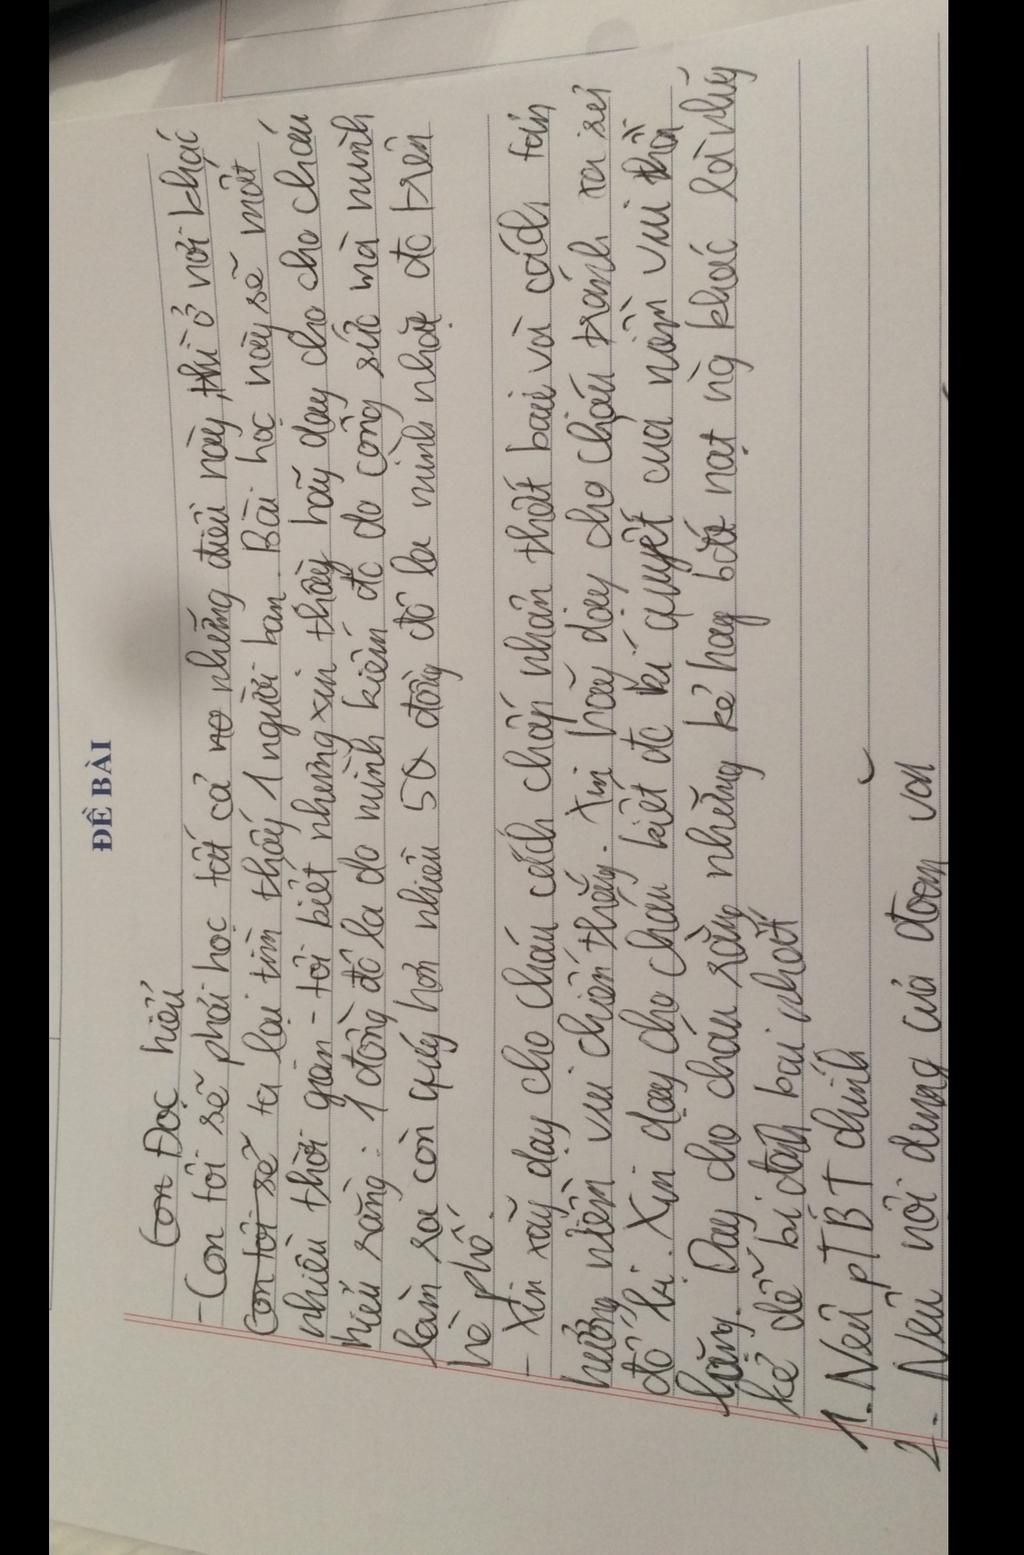 ĐỀ BÀI
Con Đọc hiểu
- Con tôi sẽ phải học tất cả những điều này, thì ở nơi khác
Con tôi sẽ ta lại tìm thấy 1 người bạn. Bài học này sẽ mất
nhiều thời gian - tôi biết nhưng xin thầy hãy dạy cho cho cháu
hiểu rằng: 1 đồng đô la do mình kiếm đc do công sức mà mình
làm ra còn quý hơn nhiều 5 đồng đô la mình nhặt đc trên
hè phố.
- Xin dạy cho cháu cách chấp nhận thất bại và cách tận
hưởng niềm vui chiến thắng. Xin hãy dạy cho cháu tránh xa sự
đố kị. Xin dạy cho cháu biết đc bí quyết của niềm vui thầm
lặng. Dạy cho cháu rằng những kẻ hay bắt nạt ng khác là những
kẻ dễ bị đánh bại nhất
1. Nêu PTBT chính
2. Nêu nội dung của đoạn văn